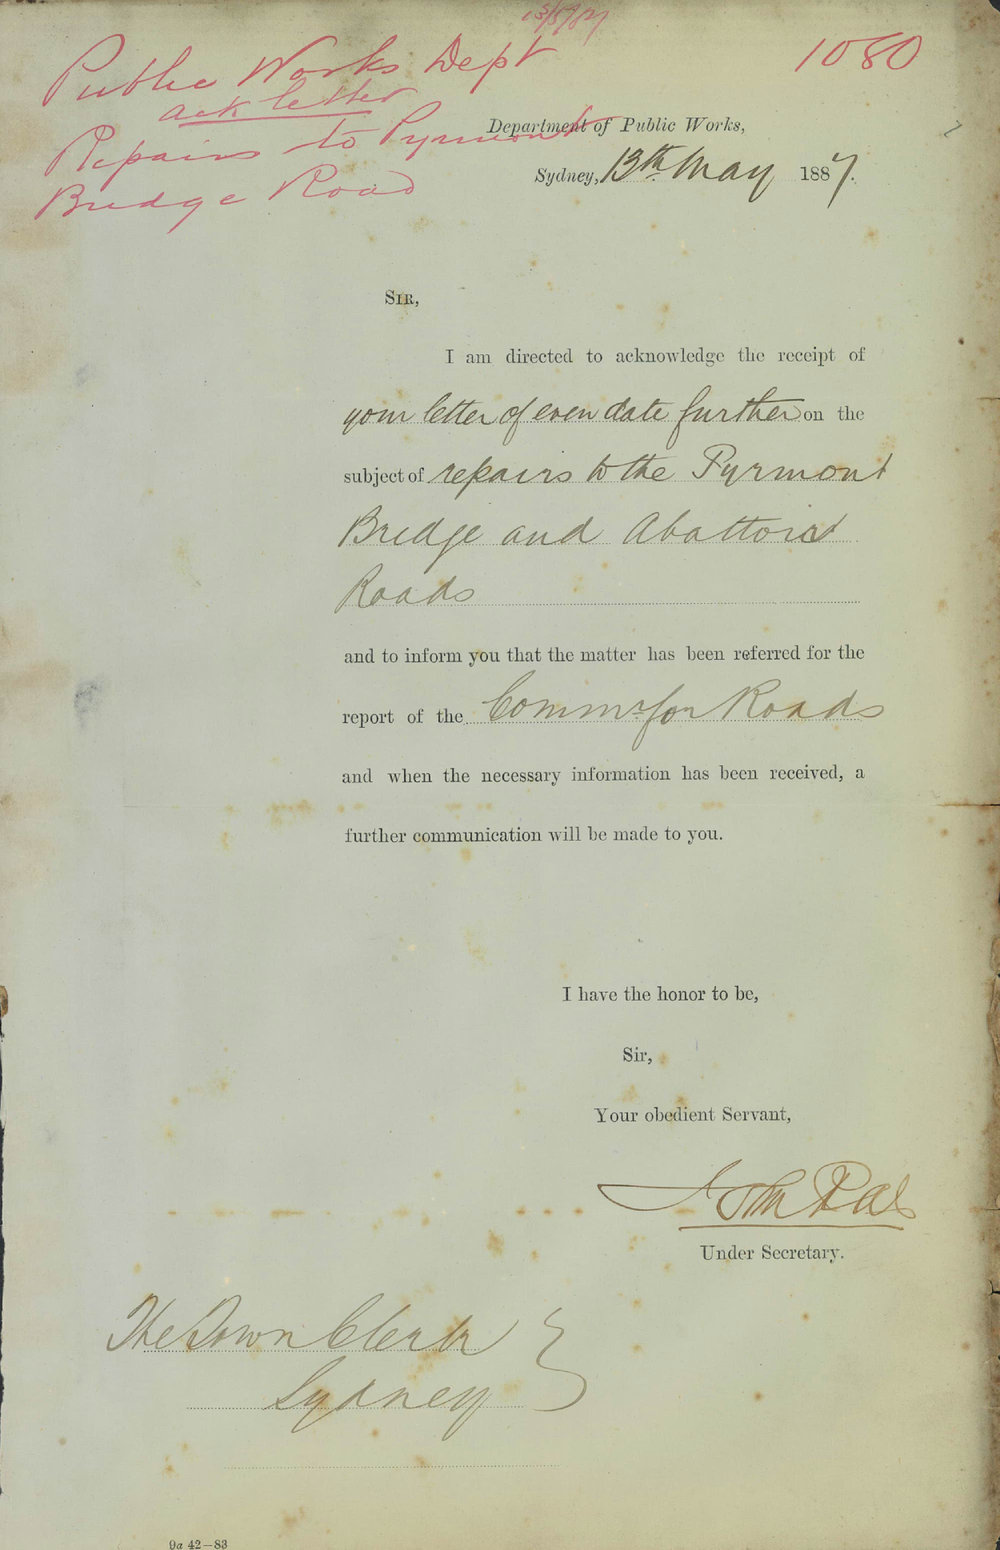 13/5/87
Public Works Dept
1080
ack letter
Repairs to Pyrmont
Bridge Road
Department of Public Works,
Sydney, 13th May 1887.
SIR,
I am directed to acknowledge the receipt of
your letter of even date further on the
subject of repairs to the Pyrmont
Bridge and Abattoir
Roads
and to inform you that the matter has been referred for the
report of the Commr for Roads
and when the necessary information has been received, a
further communication will be made to you.
I have the honor to be,
Sir,
Your obedient Servant,
John Rae
Under Secretary.
The Town Clerk
Sydney
9a 42—83